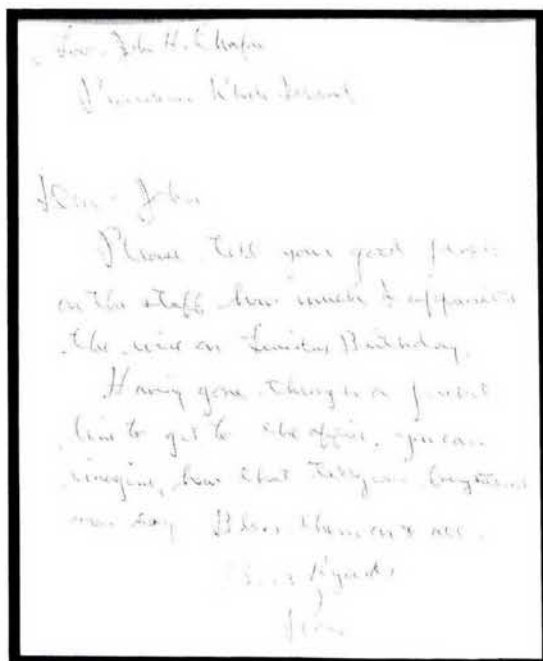 Gov. John H. Chafee
Providence Rhode Island
Dear John
Please tell your good
on the staff how much I appreciate
the wire on Birthday.
Having gone through a
line to get to the affair, you can
imagine, how that brightened
day. Bless them one & all.
Regards